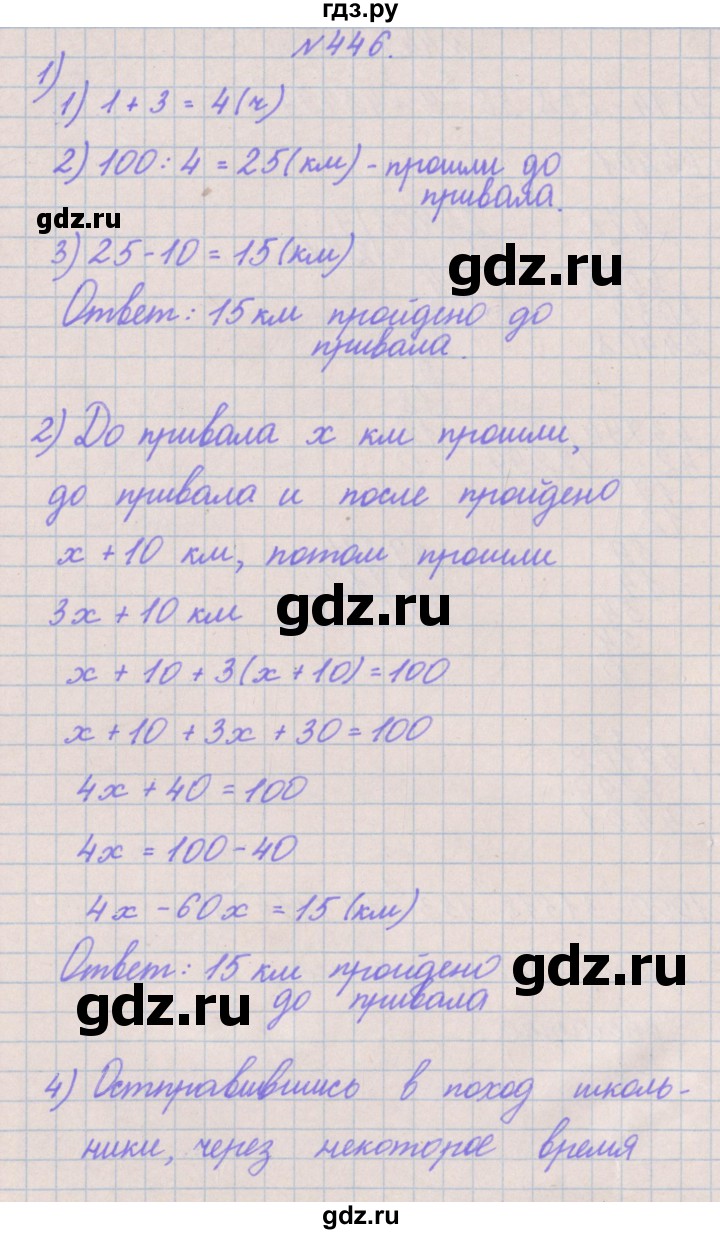 гдз.ру
№446.
1)
1) 1 + 3 = 4 (ч)
2) 100 : 4 = 25 (км) - прошли до
привала.
gdz.ru
3) 25 - 10 = 15 (км)
gdz.ru
Ответ: 15 км пройдено до
привала.
2) До привала х км прошли,
до привала и после пройдено
х + 10 км, потом прошли
3х + 10 км
gdz.ru
х + 10 + 3(х + 10) = 100
х + 10 + 3х + 30 = 100
4х + 40 = 100
4х = 100 - 40
4х - 60х = 15 (км)
Ответ: 15 км пройдено
gdz.ru
до привала
gdz.ru
4) Остправившись в поход школь-
ники, через некоторое время
gdz.ru